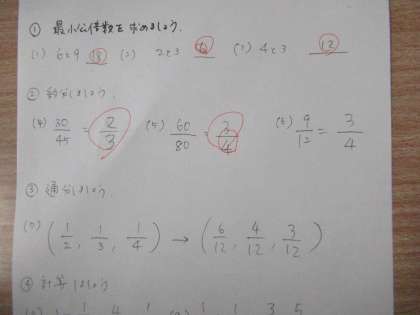 ① 最小公倍数を求めましょう。
(1) 6と9 18 (2) 2と3 6 (3) 4と3 12
② 約分しましょう。
(4) 30/45 = 2/3 (5) 60/80 = 3/4 (6) 9/12 = 3/4
③ 通分しましょう。
(7) (1/2, 1/3, 1/4) → (6/12, 4/12, 3/12)
④ 計算しましょう。